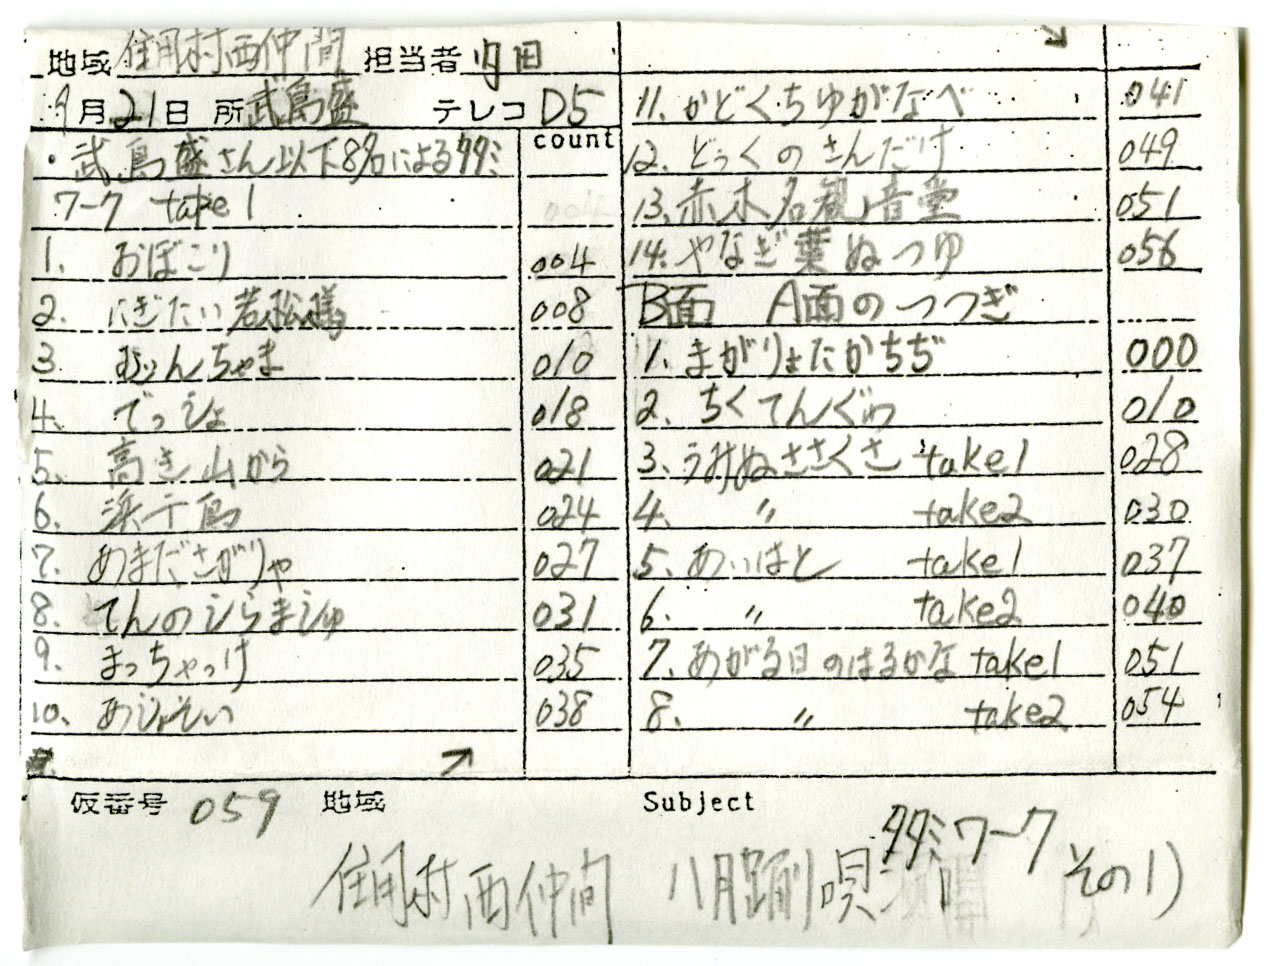 地域 住用村西仲間 担当者 内田
9月21日 所 武島盛 テレコ D5
count
・武島盛さん以下8名によるタタミ
ワーク take1
1. おぼこり 004
2. にぎたい若松様 008
3 おりんちゃま 010
4. でっしょ 018
5. 高き山から 021
6. 浜千鳥 024
7. あまださがりゃ 027
8. てんのしらましゅ 031
9. まっちゃっけ 035
10. あじょそい 038
↗
↗
11. かどくちゆがなべ 041
12. どっくのさんだけ 049
13. 赤木名観音堂 051
14. やなぎ葉ぬつゆ 056
B面 A面のつづき
1. まがりょたかちぢ 000
2. ちくてんぐゎ 010
3. うみぬささくさ take1 028
4. 〃 take2 030
5. あいはと take1 037
6. 〃 take2 040
7. あがる日のはるかな take1 051
8. 〃 take2 054
仮番号 059 地域 Subject
住用村西仲間 八月踊り唄 タタミワーク その1)